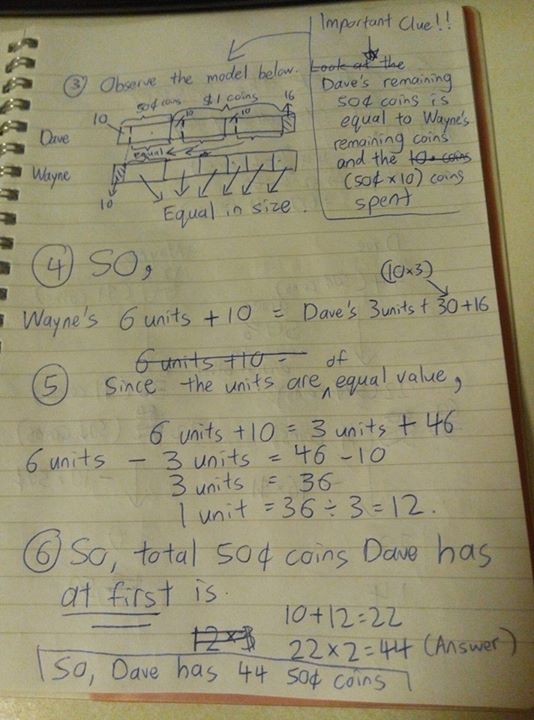 Important Clue!!
③ Observe the model below.
Look at the
Dave's remaining
50¢ coins is
equal to Wayne's
remaining coins
and the 10. coins
(50¢ x 10) coins
spent
50¢ coins $1 coins 16
10 10 10
Dave
equal
Wayne
10
Equal in size.
④ SO,
(10×3)
Wayne's 6 units + 10 = Dave's 3 units + 30 + 16
6 units + 10 =
⑤ Since the units are of equal value,
6 units + 10 = 3 units + 46
6 units - 3 units = 46 - 10
3 units = 36
1 unit = 36 ÷ 3 = 12.
⑥ So, total 50¢ coins Dave has
at first is.
10 + 12 = 22
12 × 3
22 × 2 = 44 (Answer)
So, Dave has 44 50¢ coins